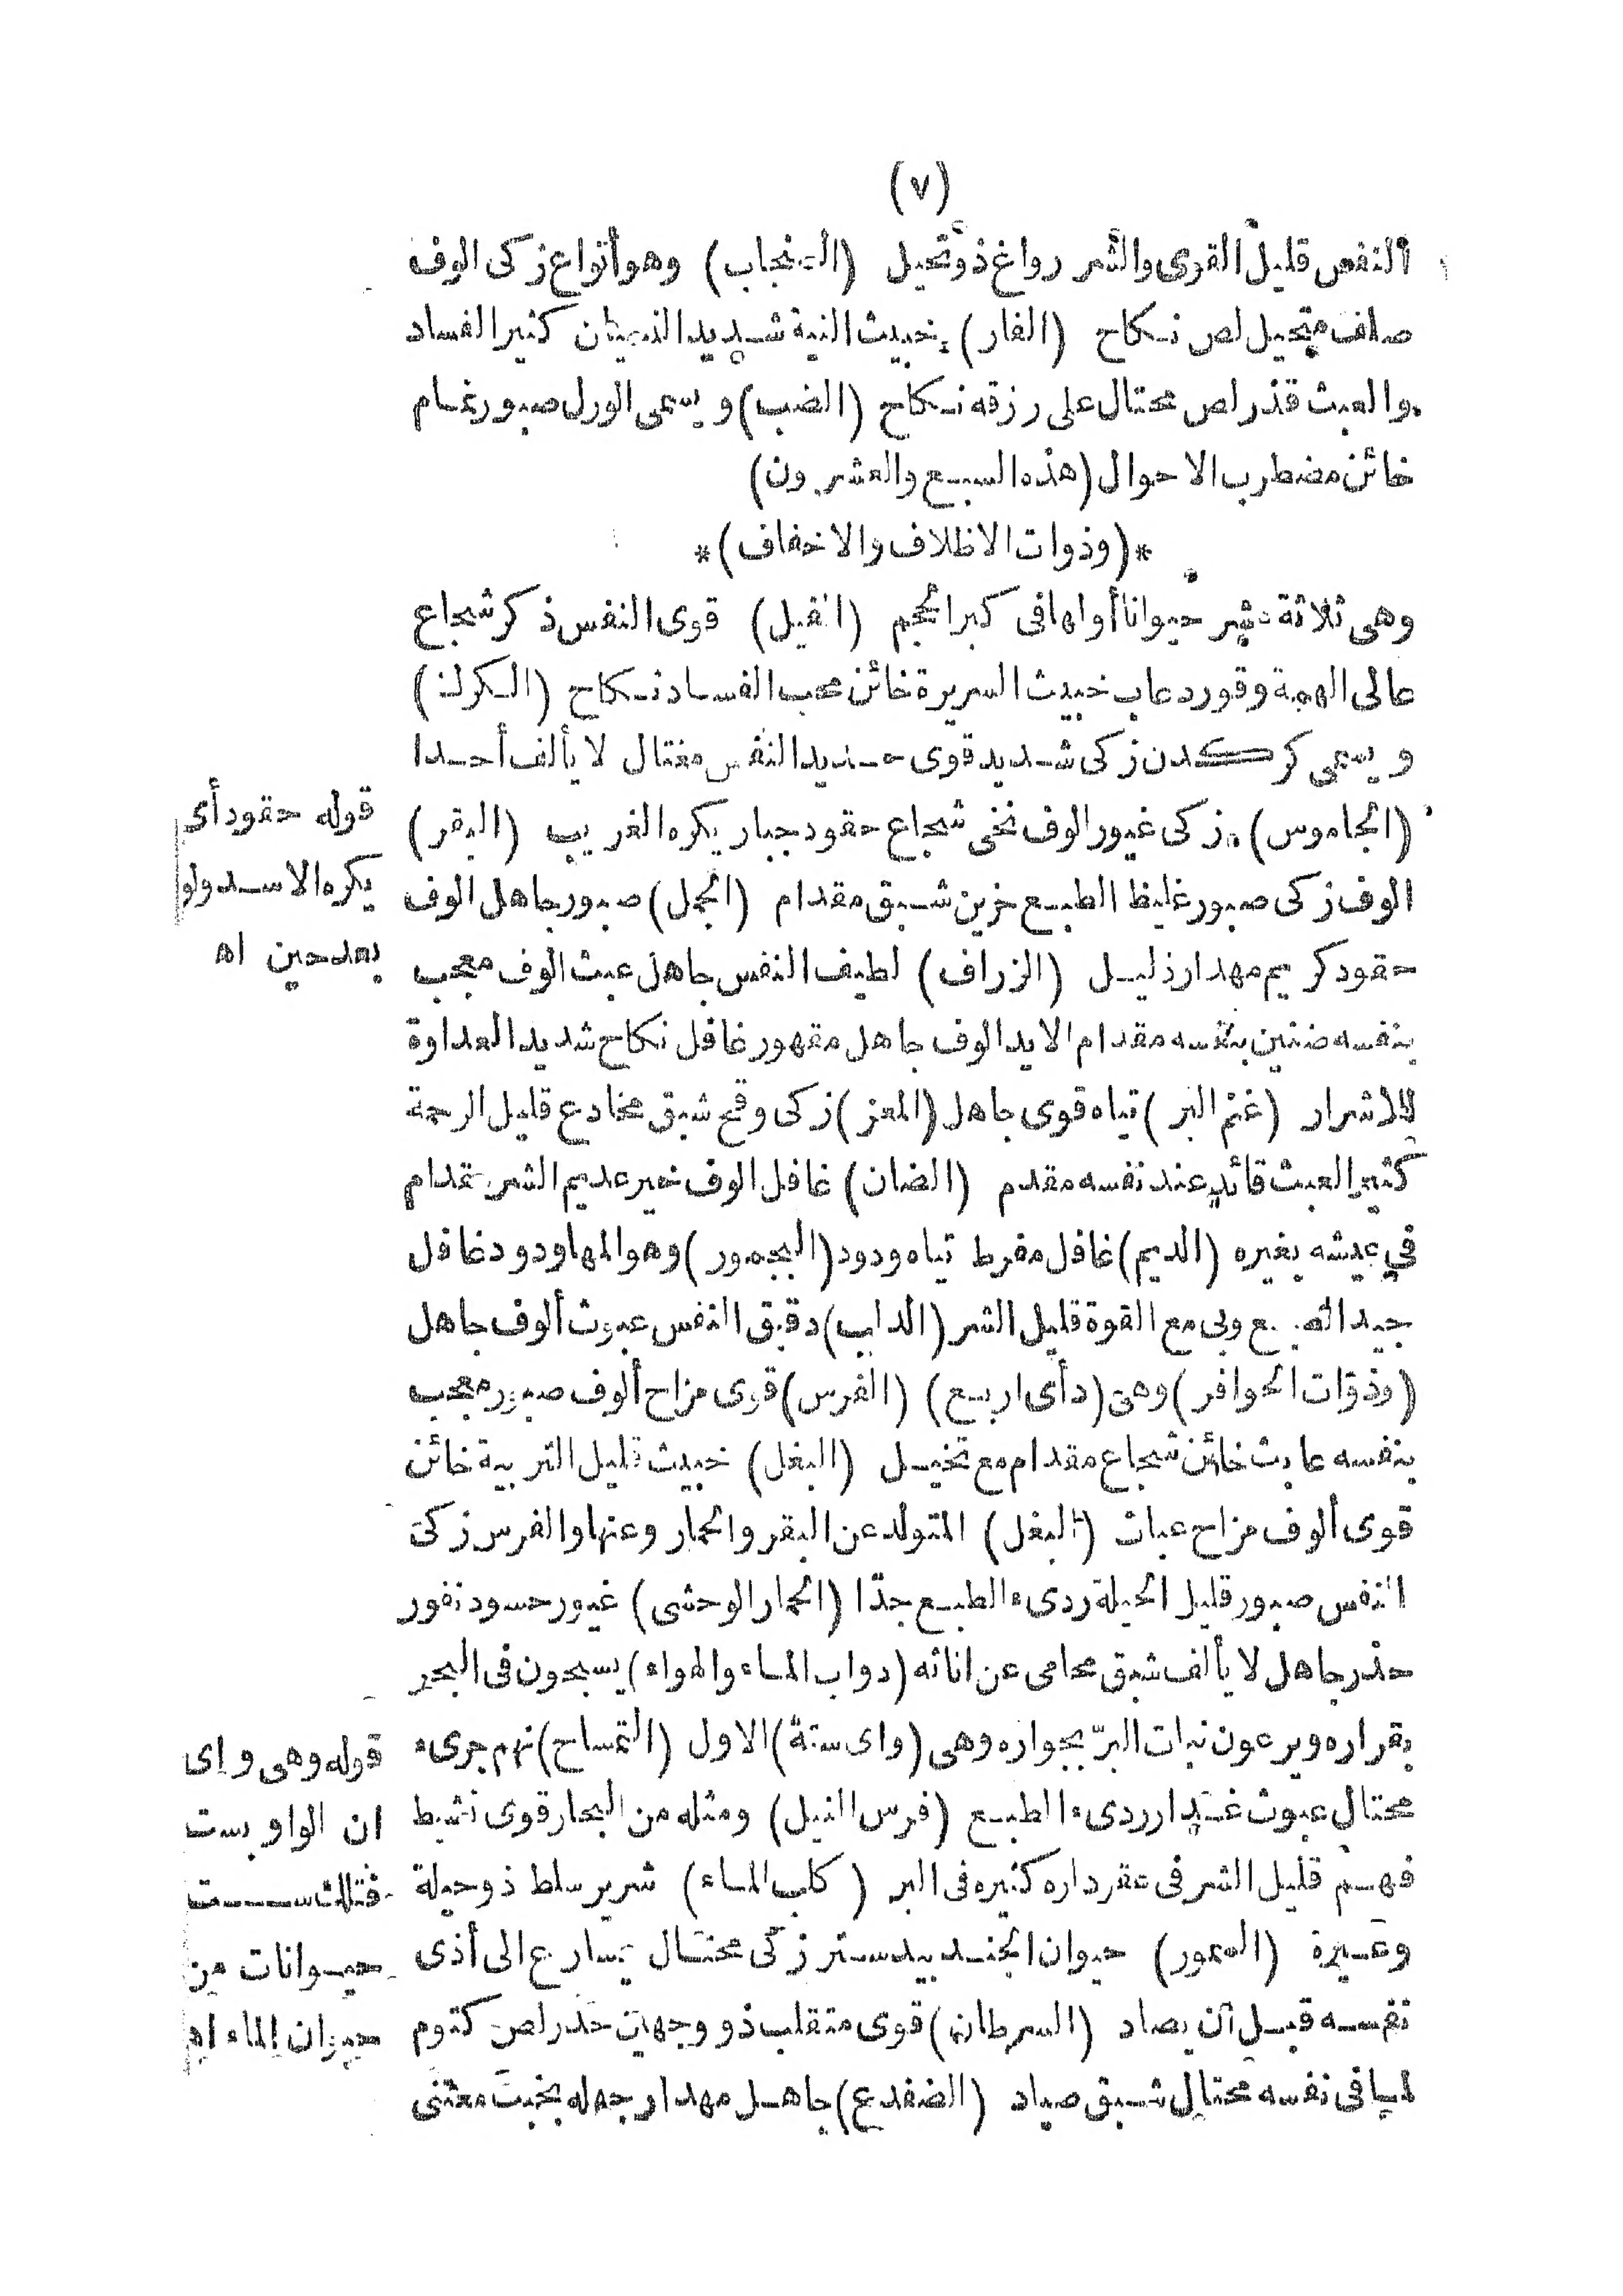 (٧)
النفس قليل القوى والشر رواغ ذو تحيل (السنجاب) وهو أنواع زكى الوف
صلف متحيل لص نكاح (الفار) خبيث النية شديد كثير الفساد
والعبث قذر لص محتال على رزقه نكاح (الضب) ويسمى الورل صبور نمام
خائن مضطرب الاحوال (هذه السبع والعشرون)
*(وذوات الاظلاف والاخفاف)*
وهى ثلاثة عشر حيوانا أولها فى كبر الحجم (الفيل) قوى النفس ذكر شجاع
عالى الهمة وقور دعاب خبيث السريرة خائن محب الفساد نكاح (الكرك)
ويسمى كركدن زكى شديد قوى حديد النفس مغتال لا يألف أحدا
(الجاموس) زكى غيور الوف نخى شجاع حقود جبار يكره الغريب (البقر)
الوف زكى صبور غليظ الطبع خزين شبق مقدام (الجمل) صبور جاهل الوف
حقود كريم مهدار ذليل (الزراف) لطيف النفس جاهل عبث الوف معجب
بنفسه ضنين بنفسه مقدام الايد الوف جاهل مقهور غافل نكاح شديد العداوة
للاشرار (غنم البر) تياه قوى جاهل (المعز) زكى وقح شبق مخادع قليل الرحمة
كثير العبث قائد عند نفسه مقدم (الضان) غافل الوف خير عديم الشر مقدام
فى عيشه بغيره (الديم) غافل مفرط تياه ودود (اليحمور) وهو المها ودود غافل
جيد ولى مع القوة قليل الشر (الداب) دقيق النفس عبوث ألوف جاهل
(وذوات الحوافر) وهى (د أى اربع) (الفرس) قوى مزاح ألوف صبور معجب
بنفسه عابث خائن شجاع مقدام مع تخيل (البغل) خبيث قليل التربية خائن
قوى ألوف مزاح عباث (البغل) المتولد عن البقر والحمار وعنها والفرس زكى
النفس صبور قليل الحيلة ردىء الطبع جدّا (الحمار الوحشى) غيور حسود نفور
حذر جاهل لا يألف شبق محامى عن اناثه (دواب الماء والهواء) يسبحون فى البحر
بقراره ويرعون نبات البرّ بجواره وهى (واى ستة) الاول (التمساح) نهم جرىء
محتال عبوث غدار ردىء الطبع (فرس النيل) ومثله من البحار قوى نشيط
فهم قليل الشر فى عقر داره كثيره فى البر (كلب الماء) شرير سلط ذو حيلة
وغيرة (السمور) حيوان الجندبيدستر زكى محتال يسارع الى أذى
نفسه قبل أن يصاد (السرطان) قوى متقلب ذو وجهين حذر لص كتوم
لما فى نفسه محتال شبق صياد (الضفدع) جاهل مهدار جهله بخبث معتنى
قوله حقود أى
يكره الاسد ولو
بعد حين اه
قوله وهى واى
ان الواو بست
فتلك ست
حيوانات من
حيوان الماء اه